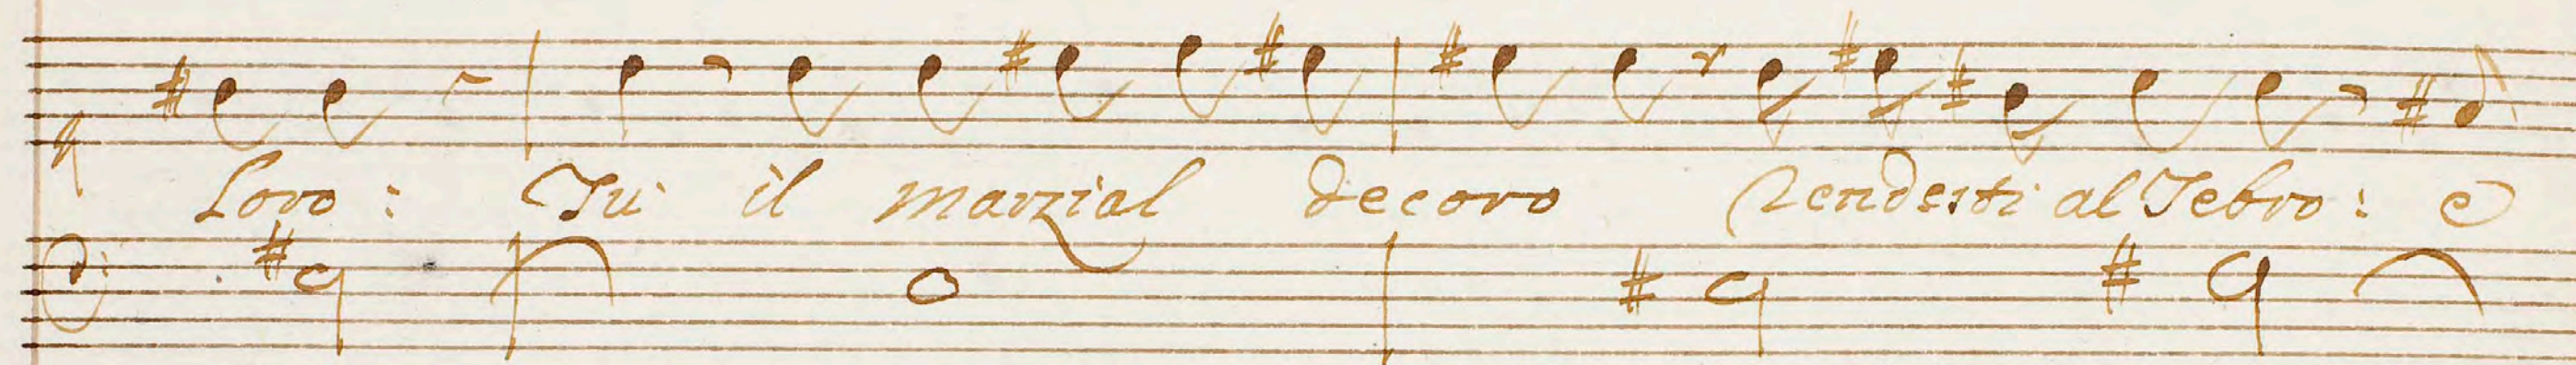 loro: Tu il marzial decoro Rendesti al Tebro: e